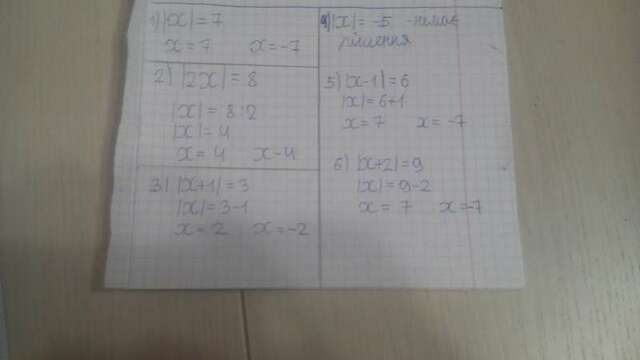 1) |x| = 7
x = 7 x = -7
2) |2x| = 8
|x| = 8:2
|x| = 4
x = 4 x - 4
3) |x+1| = 3
|x| = 3-1
x = 2 x = -2
4) |x| = -5 - немає
рішення
5) |x-1| = 6
|x| = 6+1
x = 7 x = -7
6) |x+2| = 9
|x| = 9-2
x = 7 x = -7